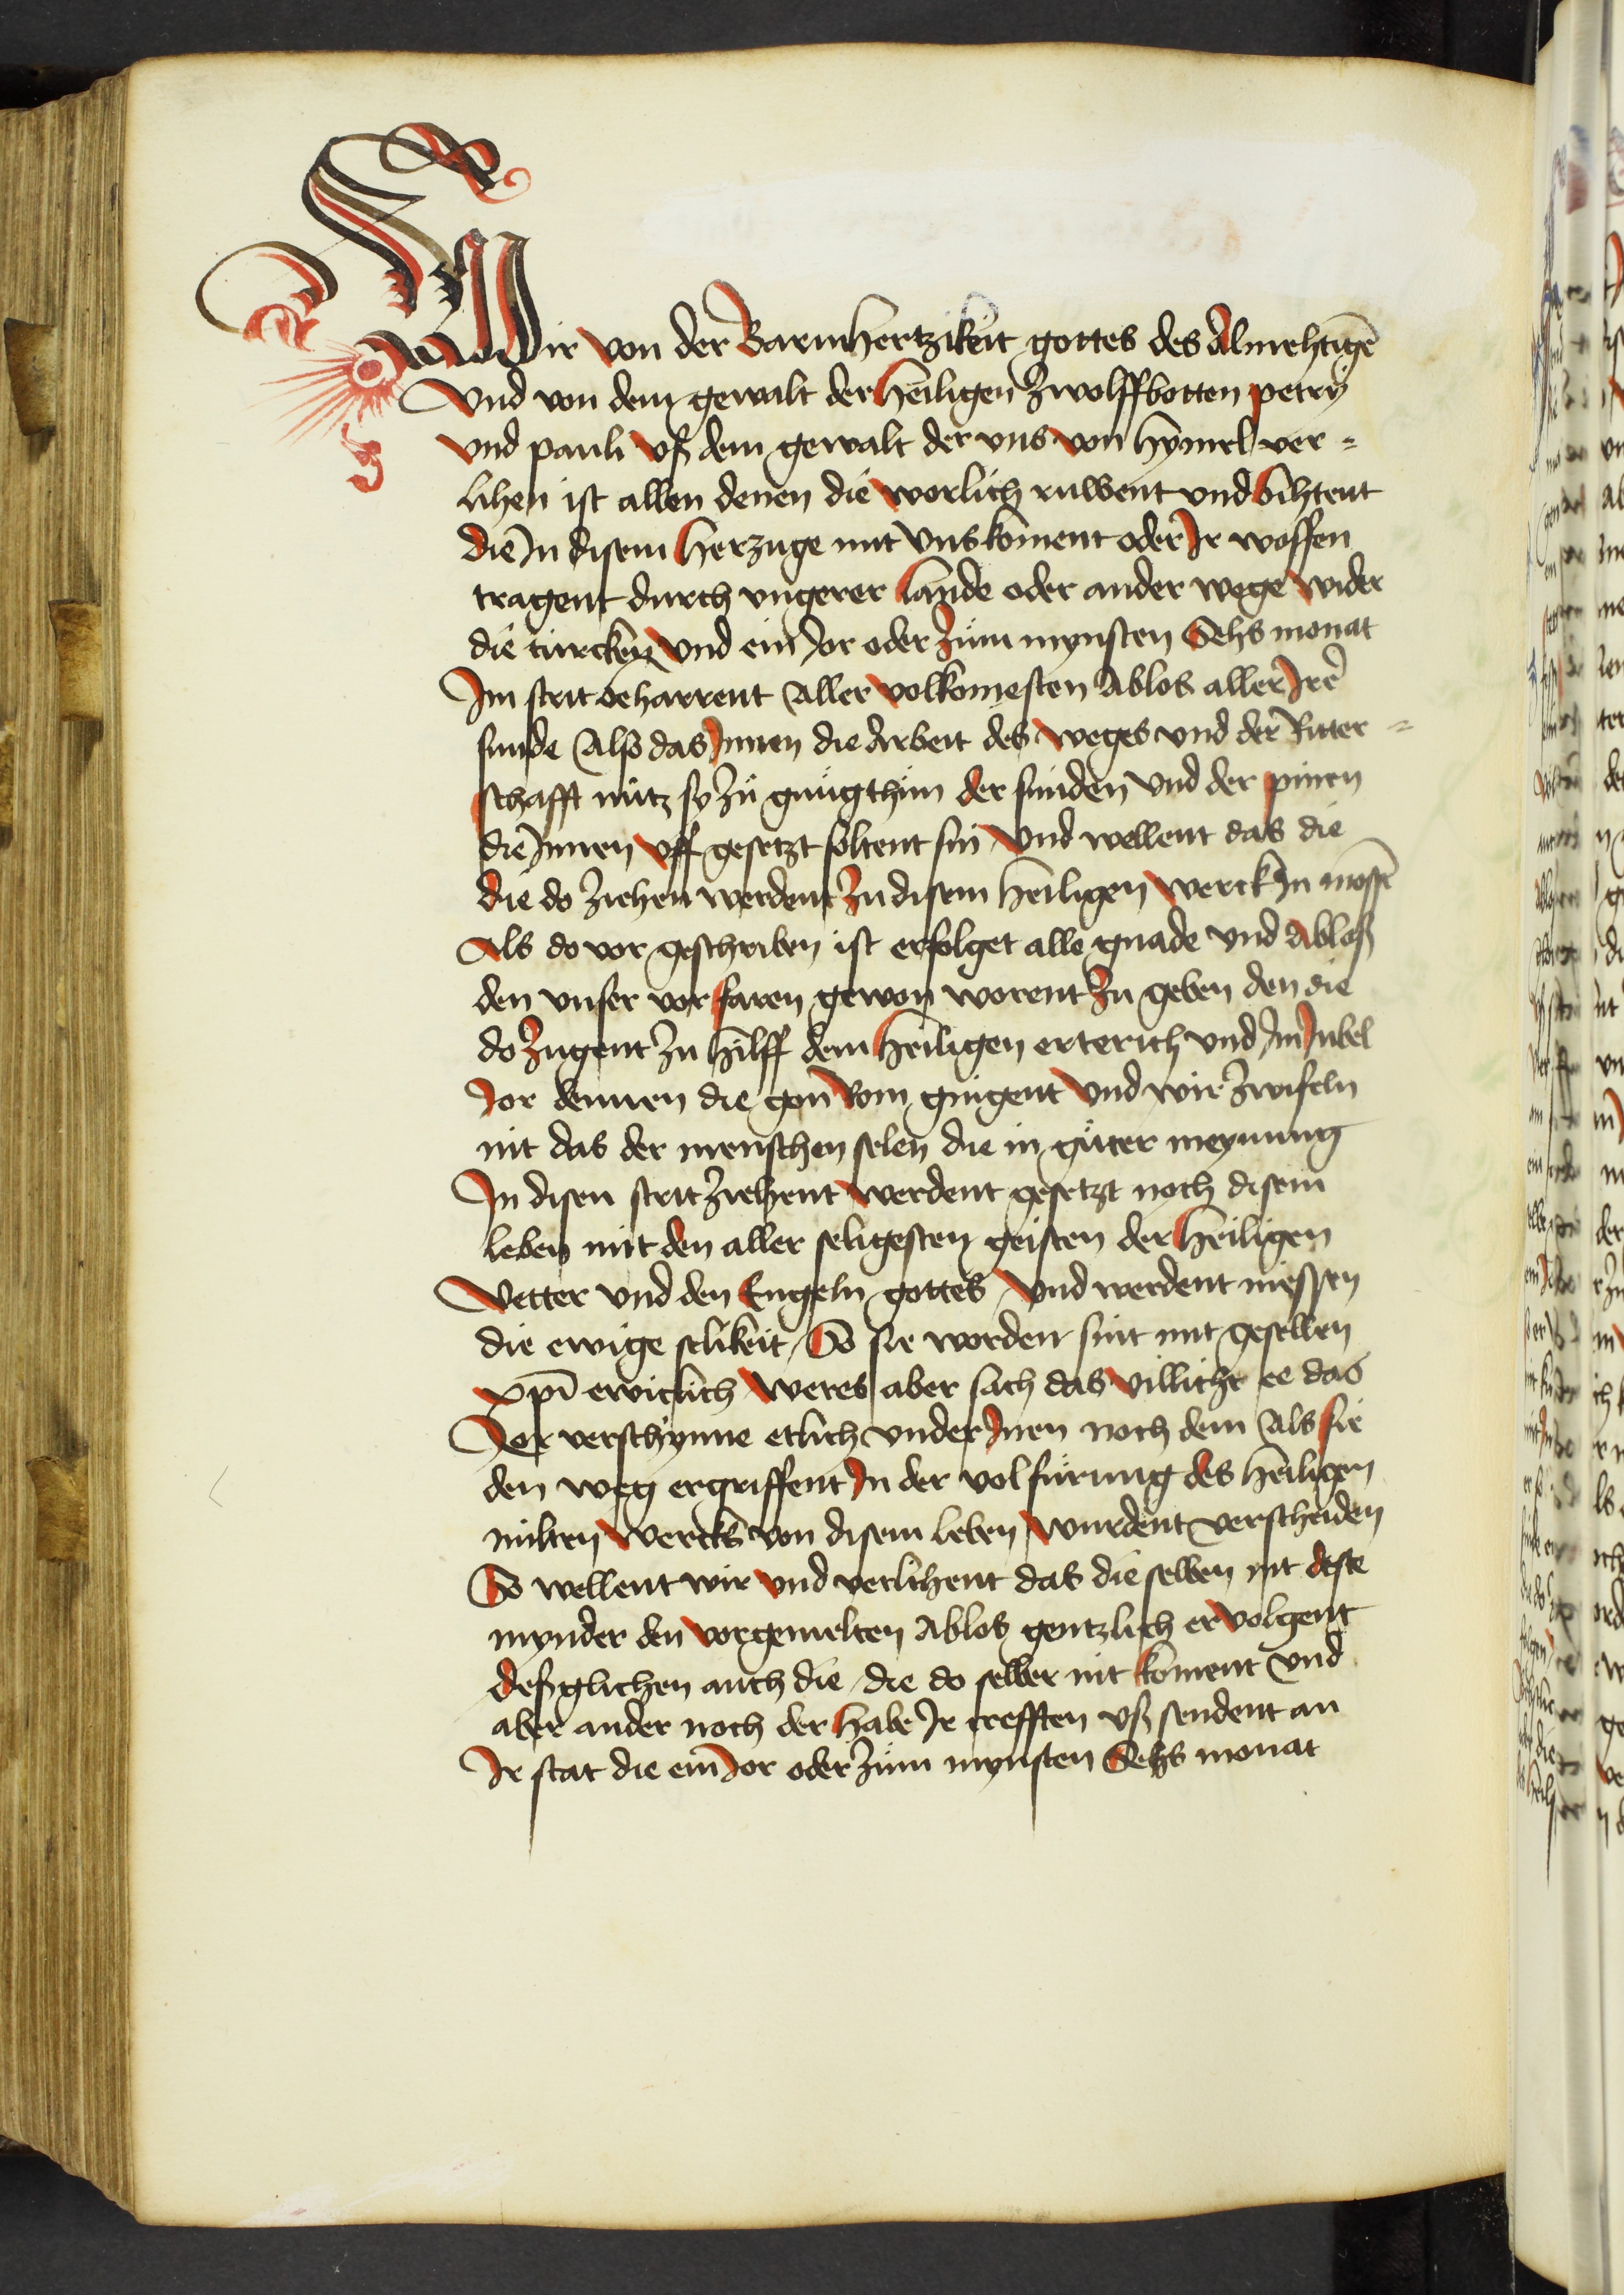 Wir von der Barmhertzikeit gottes des Almehtigē
Vnd von dem gewalt der heiligen Zwolffbotten petry
vnd pauli vß dem gewalt der vns von hymel ver=
lihen ist allen denen die worlich ruwent vnd bihtent
die In disem herzuge mit Vns koment oder Ir woffen
tragent durch vngerer lande oder ander wege wider
die türcken Vnd ein Jor oder Zum mynsten Sehs monat
Im strit beharrent Aller volkomesten Ablos aller Irē
sunde Also das Innen die Arbeit des weges vnd der Ritter=
schafft nütz sy Zü gnügthün der sünden Vnd der pinen
die Innen vff gesetzt soltent sin Vnd wellent das die
die do Ziehen werdent Zu disem heiligen werck In mossē
Als do vor geschriben ist erfolget alle gnade vnd Abloß
den vnser vorfaren gewon worent Zu geben den die
do Zugent Zu hilff dem heiligen erterich vnd Im Jubel
Jor dennen die gon Rom gingent Vnd wir Zwifeln
nit das der menschen selen die in güter meynung
In disen strit Ziehent werdent gesetzt noch disem
leben mit den aller seligesten geisten der heiligen
Vetter vnd den Engeln gottes Vnd werdent niessen
die ewige selikeit So sie worden sint mit gesellen
xpī ewiclich Weres aber sach das villicht ee das
Jor verschynne etlich vnder Inen noch dem Als sie
den weg ergriffent In der volfürung des heiligen
milten wercks von disem leben wurdent verscheiden
So wellent wir Vnd verlihent das die selben nit deste
mynder den vorgemelten Ablos gentzlich ervolgent
deßglichen auch die die do selber nit koment Vnd
aber ander noch der habe Ir crefften vß sendent an
Ir stat die ein Jor oder Züm mynsten Sehs monat